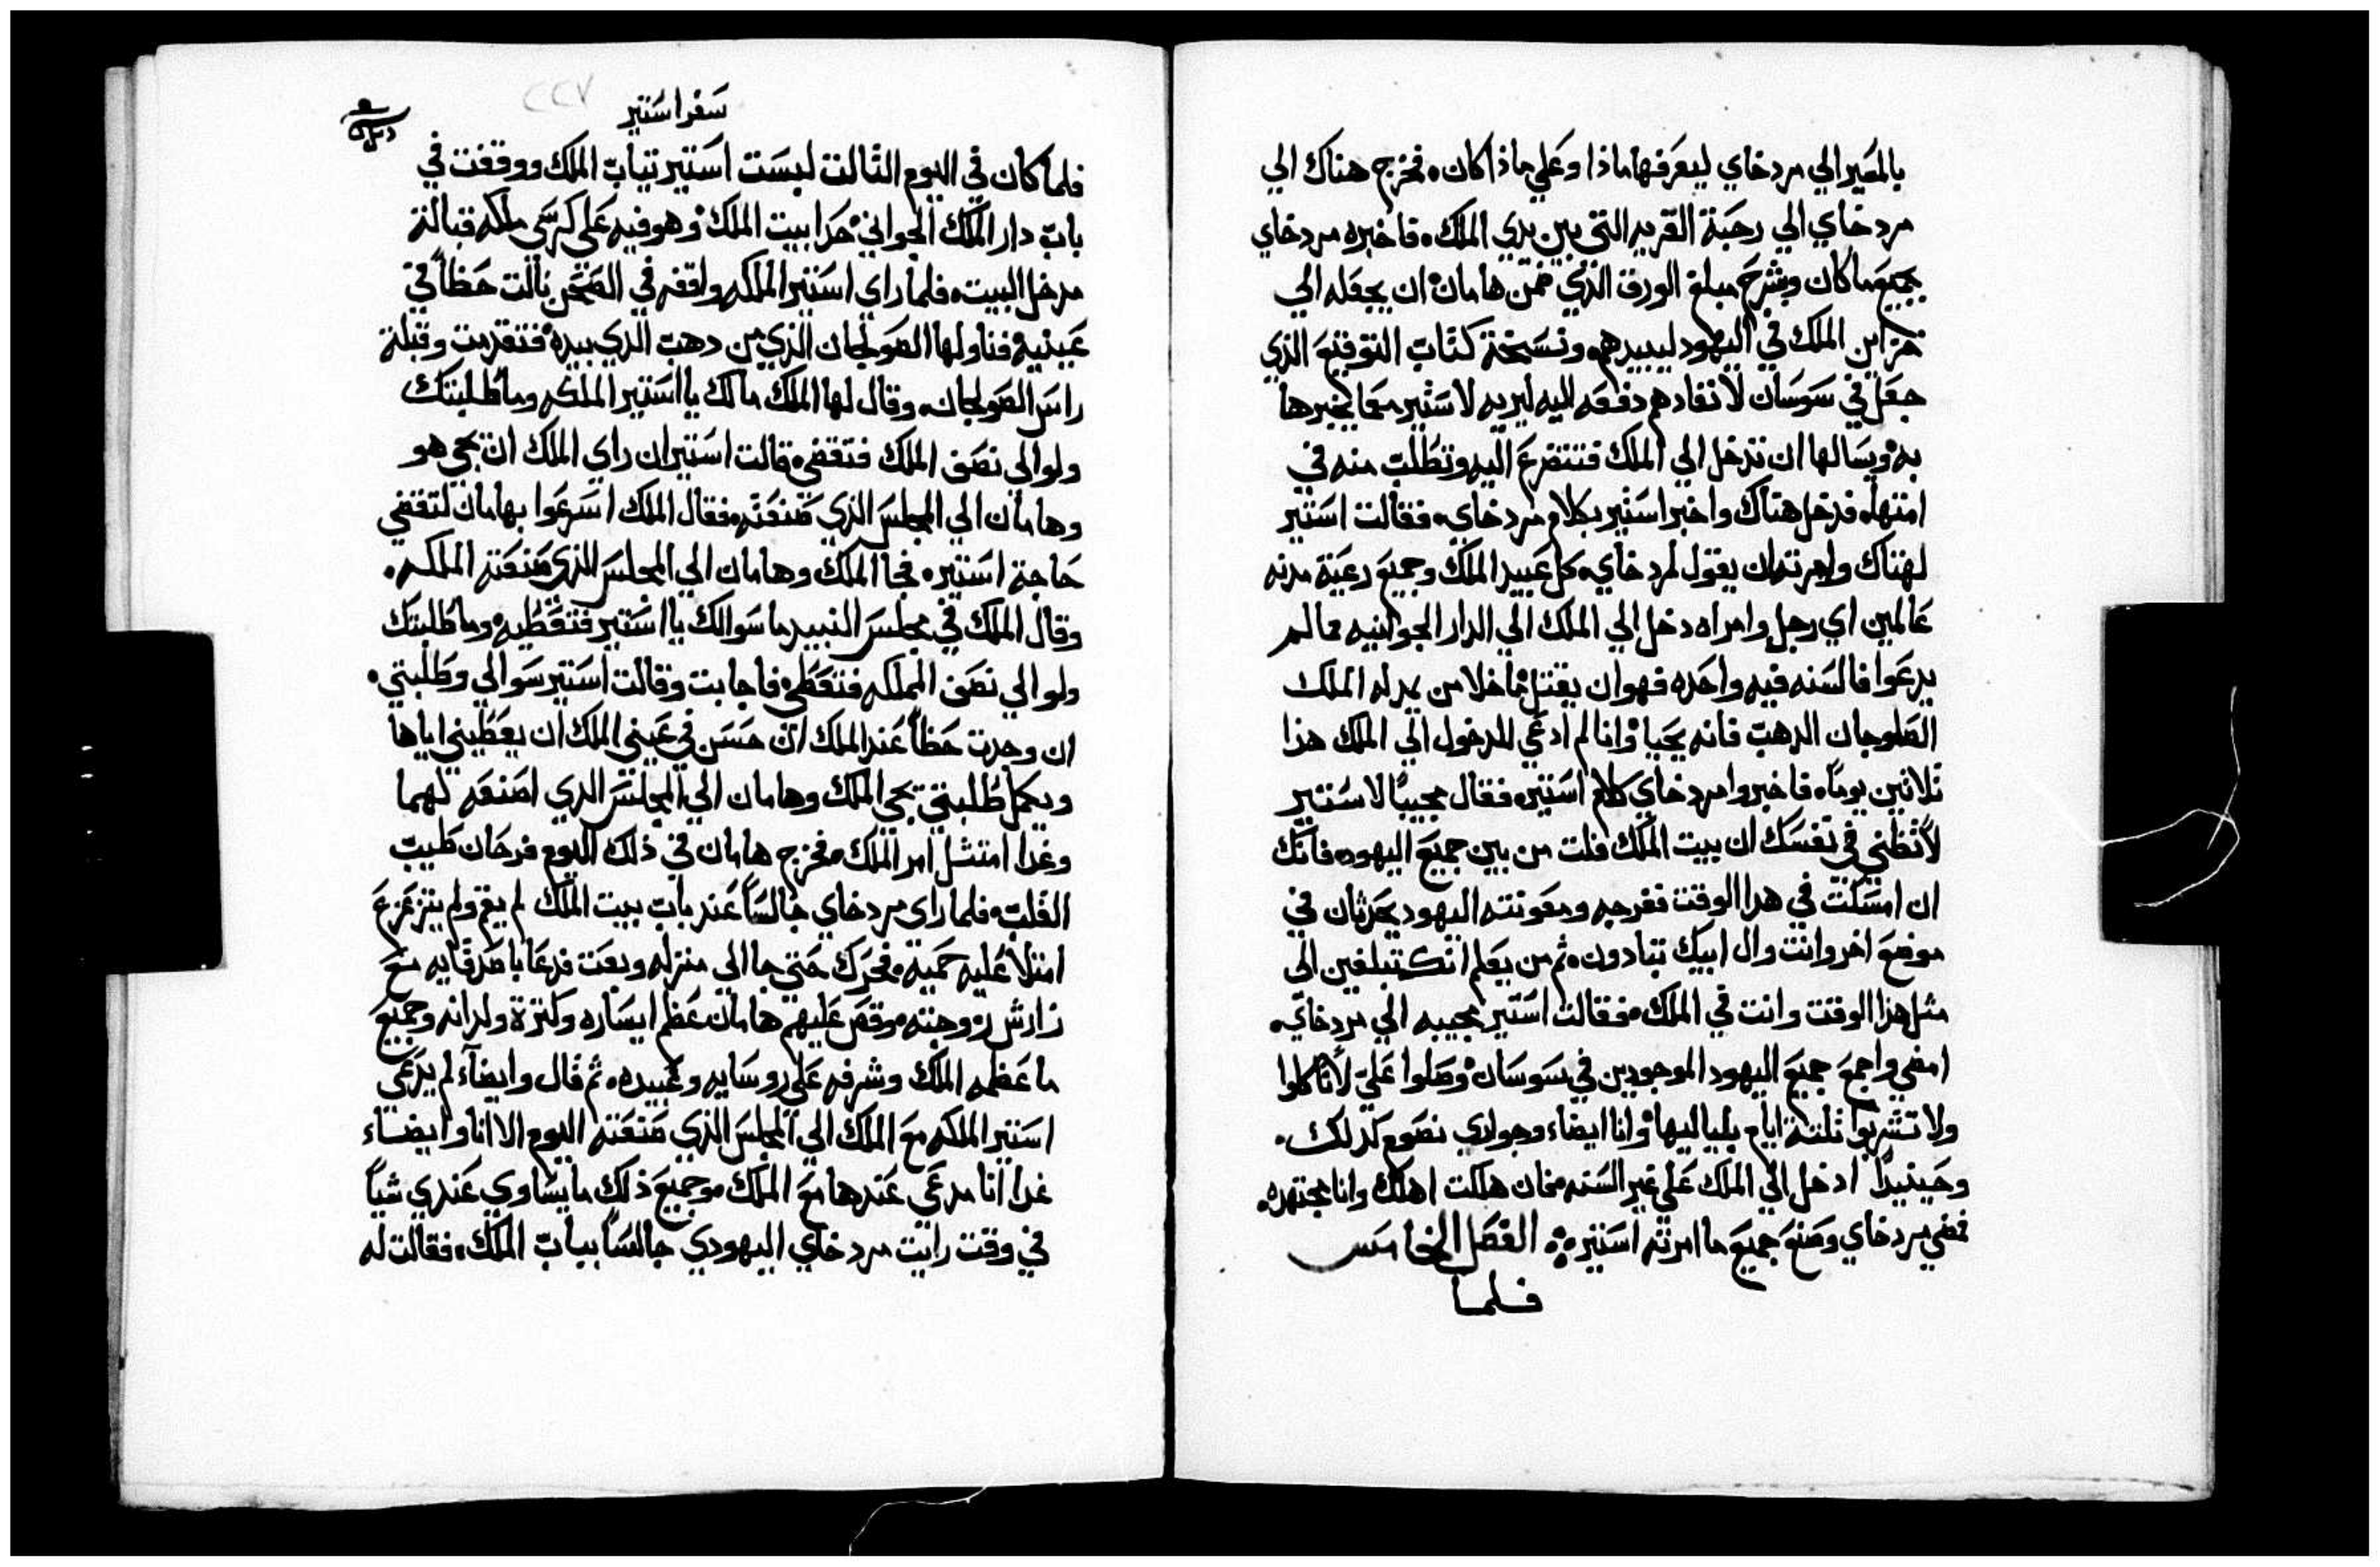 بالمصير الي مردخاي ليعرفها ماذا وعلي ماذا كان، فخرج هناك الي
مردخاي الي رحبة القريه التي بين يدي الملك، فاخبره مردخاي
بجميع ما كان وبشرح مبلغ الورق الذي ضمن هامان ان يجعله الي
خزاين الملك في اليهود ليبيدهم، ونسخة كتاب التوقيع الذي
جعل في سوسان لانفادهم دفعه اليه ليريه لاستير معما يخبرها
به ويسالها ان تدخل الي الملك فتتضرع اليه وتطلب منه في
امتها، فدخل هتاك واخبر استير بكلام مردخاي، فقالت استير
لهتاك وامرته ان يقول لمردخاي، كل عبيد الملك وجميع رعية مدنه
عالمين اي رجل وامراه دخل الي الملك الي الدار الجوانيه ممالم
يدعوا فالسنه فيه واحده فهو ان يقتل ما خلا من يمد له الملك
الصلوجان الدهب فانه يحيا وانا لم ادعي للدخول الي الملك هذا
ثلاثين يوما، فاخبروا مردخاي كلام استير، فقال مجيبا لاستير
لا تظني في نفسك ان بيت الملك فلت من بين جميع اليهود، فانك
ان امسكت في هدا الوقت ففرجه ومعونته اليهود يحدثان في
موضع اخر وانت وال ابيك تبادون، ثم من يعلم انك تبلغين الي
مثل هذا الوقت وانت في الملك، فقالت استير مجيبه الي مردخاي،
امضي واجمع جميع اليهود الموجودين في سوسان وصلوا علي لا تاكلوا
ولا تشربوا ثلثة ايام بلياليها وانا ايضاء وجواري نصوم كدلك،
وحينيدا ادخل الي الملك علي غير السنه، فان هلكت اهلك وانا مجتهده،
فمضي مردخاي وصنع جميع ما امرته استير، الفصل الخامس
فلما
سفر استير
٢٢٧
فلما كان في اليوم الثالت لبست استير تياب الملك ووقفت في
باب دار الملك الجواني حدا بيت الملك وهو فيه علي كرسي ملكه قبالة
مدخل البيت، فلما راي استير الملكه واقفه في الصحن نالت حظا في
عينيه فناولها الصولجان الذي من دهب الدي بيده فتقدمت وقبلة
راس الصولجان، وقال لها الملك مالك يا استير الملكه وما طلبتك
ولو الي نصف الملك فتقضي، قالت استير ان راي الملك ان يجي هو
وهامان الي المجلس الذي صنعته، فقال الملك اسرعوا بهامان لتقضي
حاجة استير، فجا الملك وهامان الي المجلس الذي صنعته الملكه،
وقال الملك في مجلس النبيد ما سوالك يا استير فتعطيه وما طلبتك
ولو الي نصف المملكه فتعطي، فاجابت وقالت استير سوالي وطلبتي،
ان وجدت حظا عند الملك ان حسن في عيني الملك ان يعطيني اياها
ويكمل طلبتي يجي الملك وهامان الي المجلس الدي اصنعه لهما
وغدا امتثل امر الملك، فخرج هامان في ذلك اليوم فرحان طيب
القلب، فلما راي مردخاي جالسا عند باب بيت الملك لم يقم ولم يتزعزع
امتلا عليه حميه، فحرك حتي جا الي منزله وبعت فدعا باصدقايه مع
زارش زوجته، وقص عليهم هامان عظم ايساره وكثرة ولدانه وجميع
ما عظمه الملك وشرفه علي روسايه وعبيده، ثم قال وايضاء لم يدعي
استير الملكه مع الملك الي المجلس الذي صنعته اليوم الا انا وايضاء
غدا انا مدعي عندها مع الملك، وجميع ذلك ما يساوي عندي شيا
في وقت رايت مردخاي اليهودي جالسا بباب الملك، فقالت له